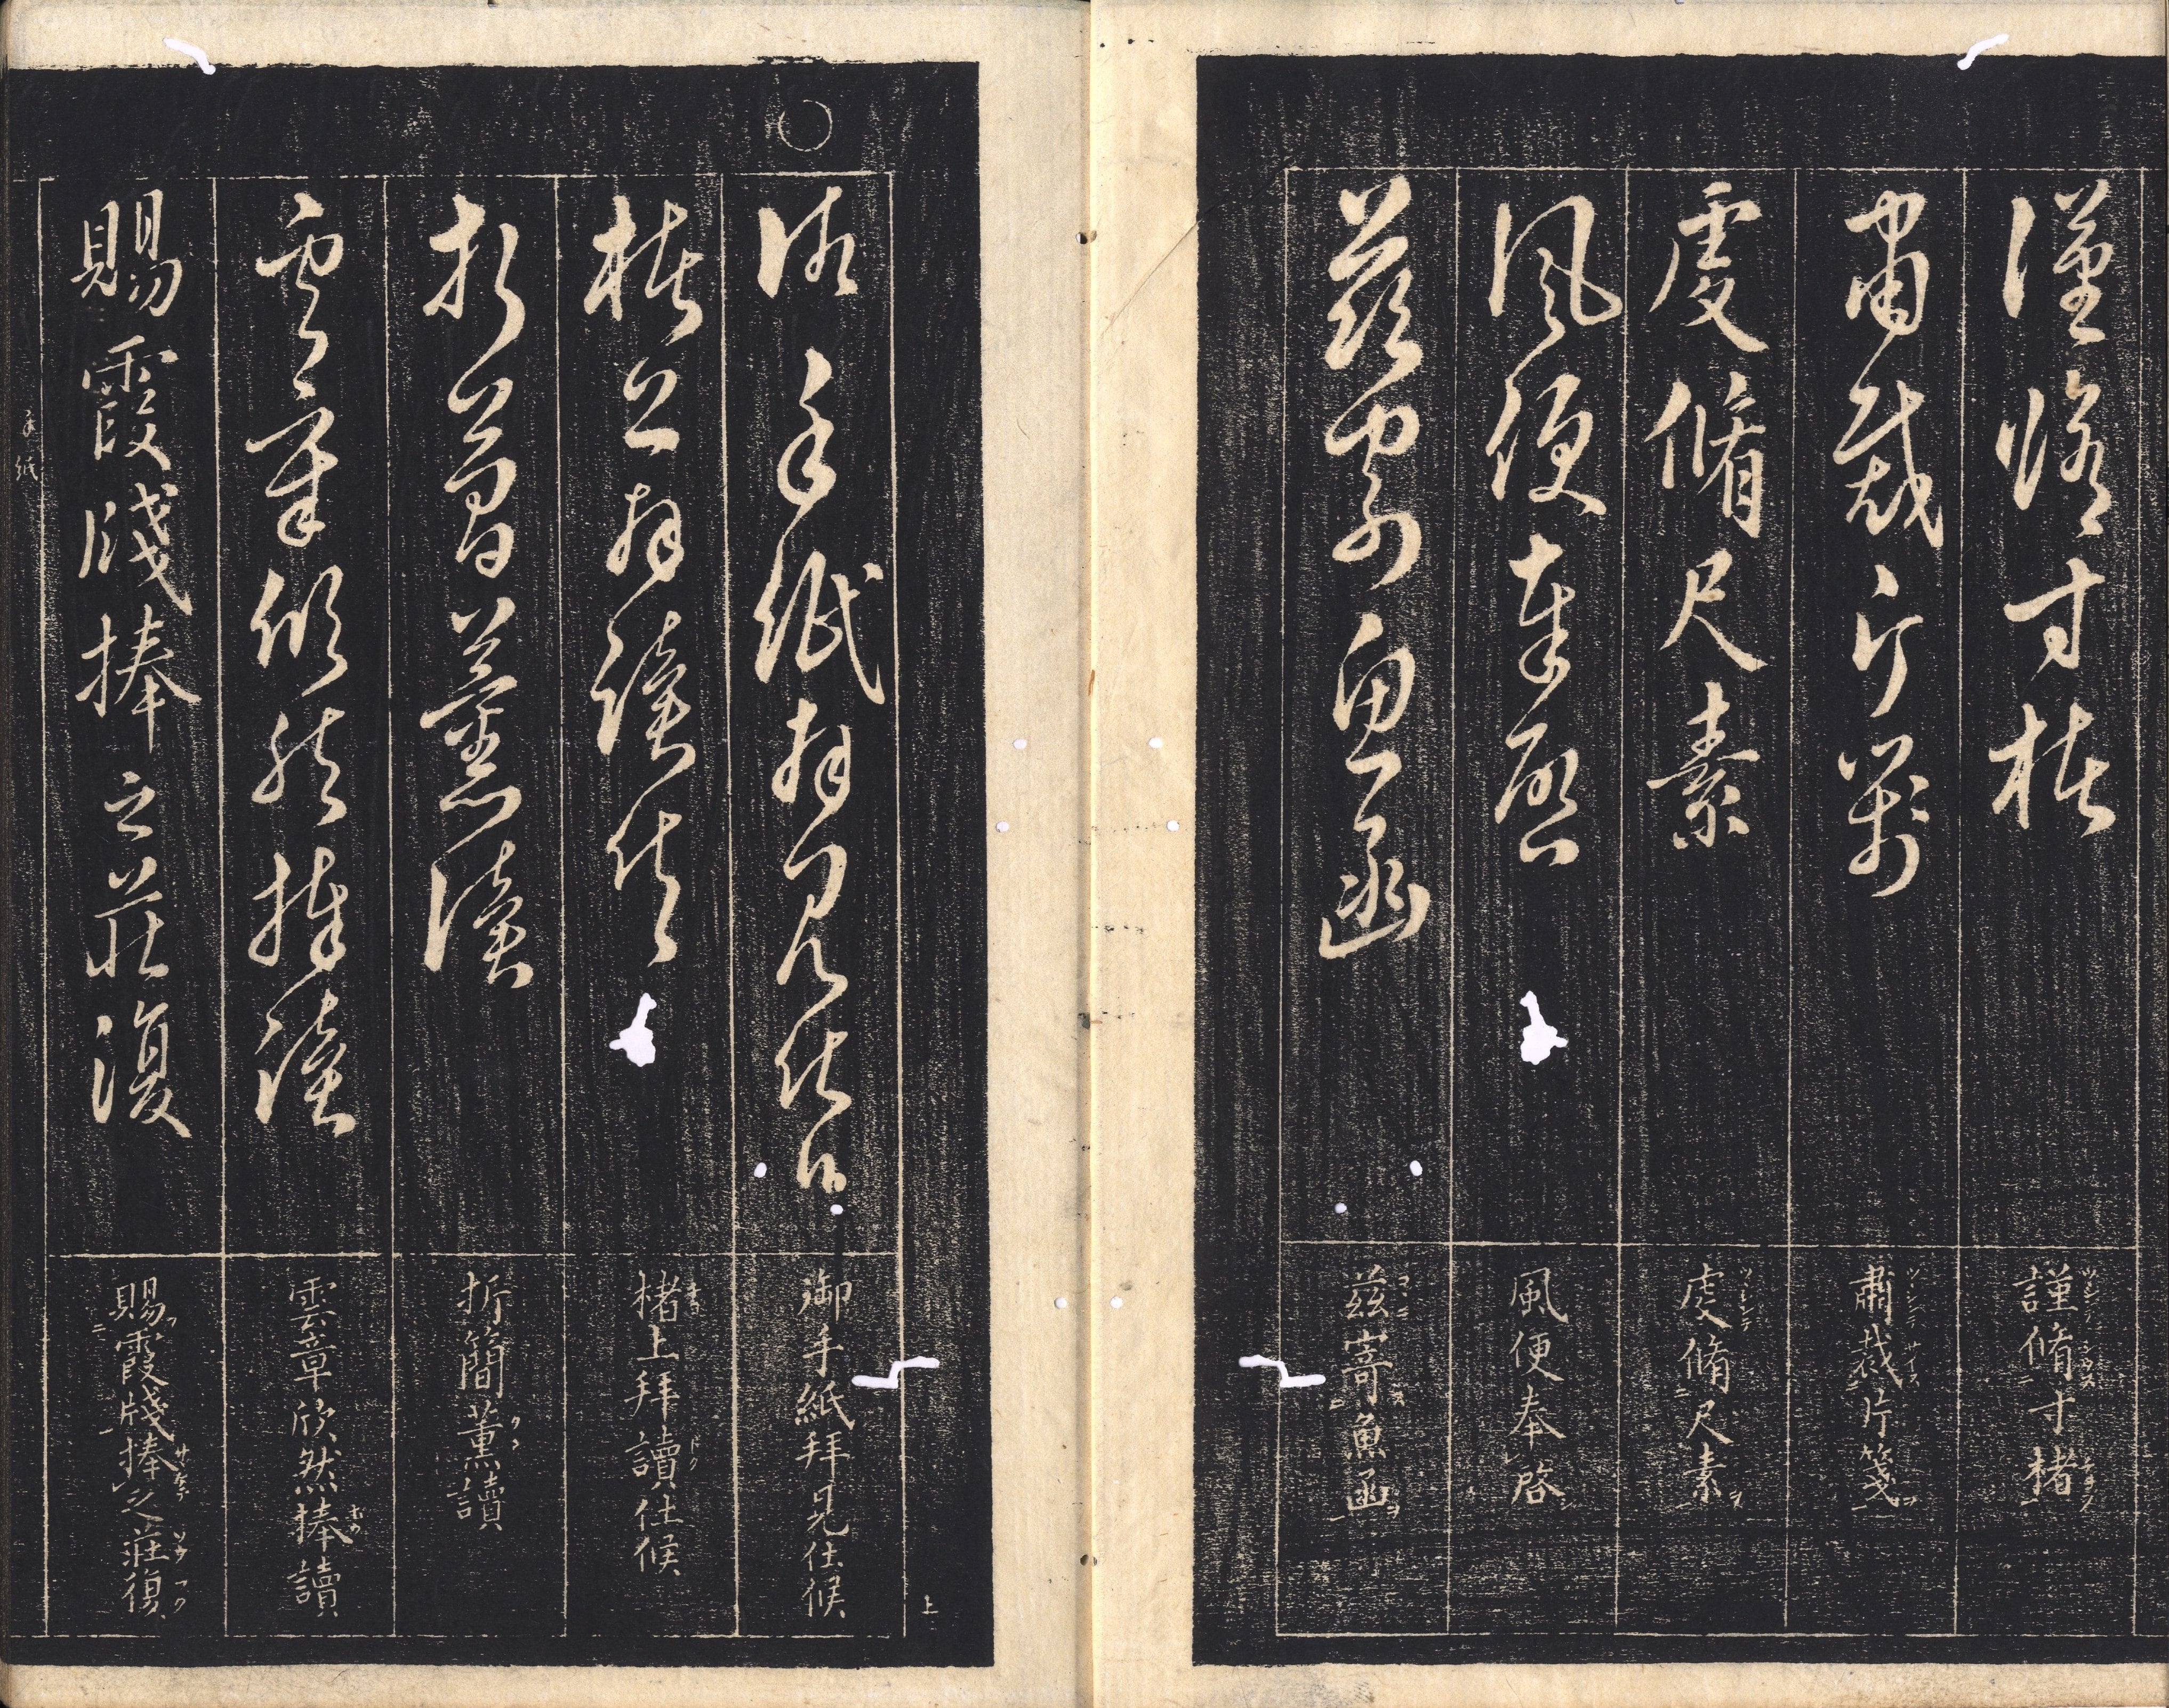 謹脩寸楮
肅裁片箋
虔脩尺素
風便奉啓
茲寄魚函
謹脩寸楮
肅裁片箋
虔脩尺素
風便奉啓
茲寄魚函
御手紙拜見仕候
楮上拜讀仕候
折簡薫讀
雲章欣然捧讀
賜霞牋捧之莊復
御手紙拜見仕候
楮上拜讀仕候
折簡薫讀
雲章欣然捧讀
賜霞牋捧之莊復
上
手紙